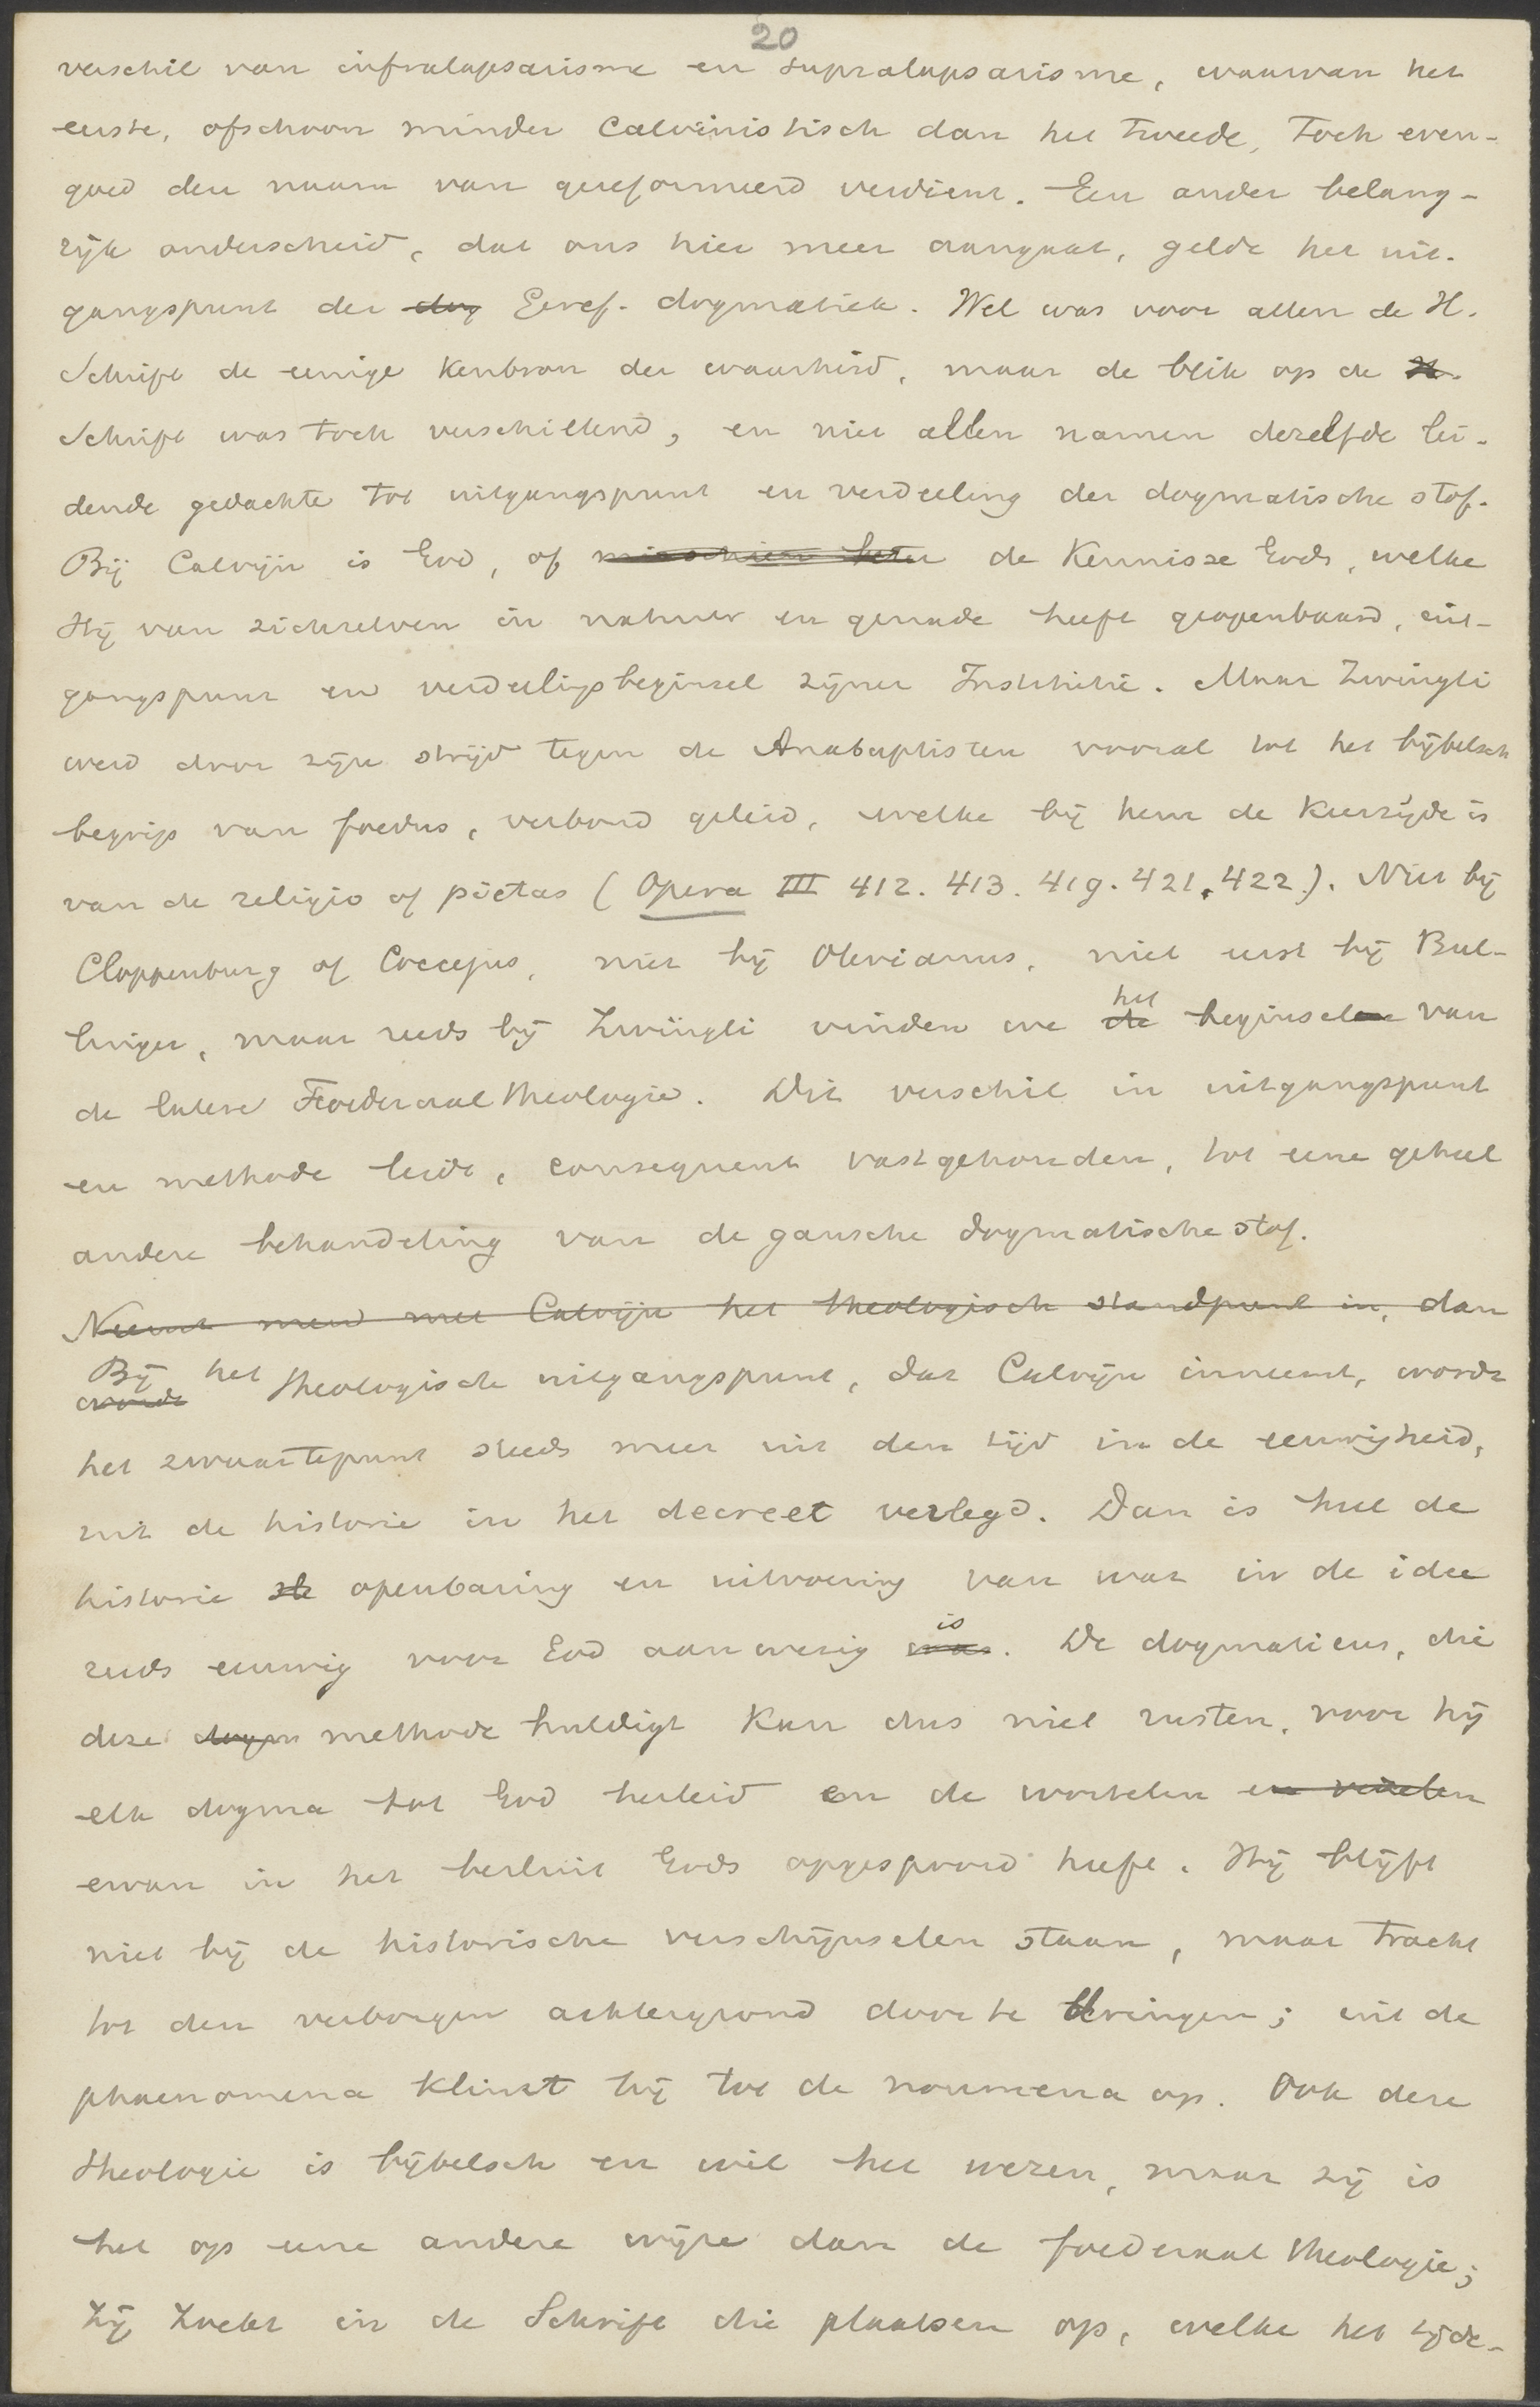 20
verschil van infralapsarisme en supralapsarisme, waarvan het
eerste, ofschoon minder Calvinistisch dan het tweede, toch even-
goed den naam van gereformeerd verdient. Een ander belang-
rijk onderscheid, dat ons hier meer aangaat, geldt het uit-
gangspunt der dog Geref. dogmatiek. Wel was voor allen de H.
Schrift de eenige kenbron der waarheid, maar de blik op de H.
Schrift was toch verschillend, en niet allen namen dezelfde lei-
dende gedachte tot uitgangspunt en verdeeling der dogmatische stof.
Bij Calvijn is God, of misschien beter de Kennisse Gods, welke
Hij van zichzelven in natuur en genade heeft geopenbaard, uit-
gangspunt en verdeelingsbeginsel zijner Institutie. Maar Zwingli
werd door zijn strijd tegen de Anabaptisten vooral tot het bijbelsch
begrip van foedus, verbond geleid, welke bij hem de keerzijde is
van de religio of pietas (Opera III 412. 413. 419. 421. 422.). Niet bij
Cloppenburg of Coccejus, niet bij Olevianus, niet eerst bij Bul-
linger, maar reeds bij Zwingli vinden we de het beginselen van
de latere Foederaaltheologie. Dit verschil in uitgangspunt
en methode leidt, consequent vastgehouden, tot eene geheel
andere behandeling van de gansche dogmatische stof.
Neemt men met Calvijn het theologisch standpunt in, dan
wordt Bij het theologische uitgangspunt, dat Calvijn inneemt, wordt
het zwaartepunt steeds meer uit den tijd in de eeuwigheid,
uit de historie in het decreet verlegd. Dan is heel de
historie openbaring en uitvoering van wat in de idee
reeds eeuwig voor God aanwezig was is. De dogmaticus, die
deze methode huldigt kan dus niet rusten, voor hij
elk dogma tot God herleid en de wortelen en vezelen
ervan in het besluit Gods opgespoord heeft. Hij blijft
niet bij de historische verschijnselen staan, maar tracht
tot den verborgen achtergrond door te dringen; uit de
phaenomena klimt hij tot de noumena op. Ook deze
theologie is bijbelsch en wil het wezen, maar zij is
het op eene andere wijze dan de foederaaltheologie;
Zij zoekt in de Schrift die plaatsen op, welke het tijde-